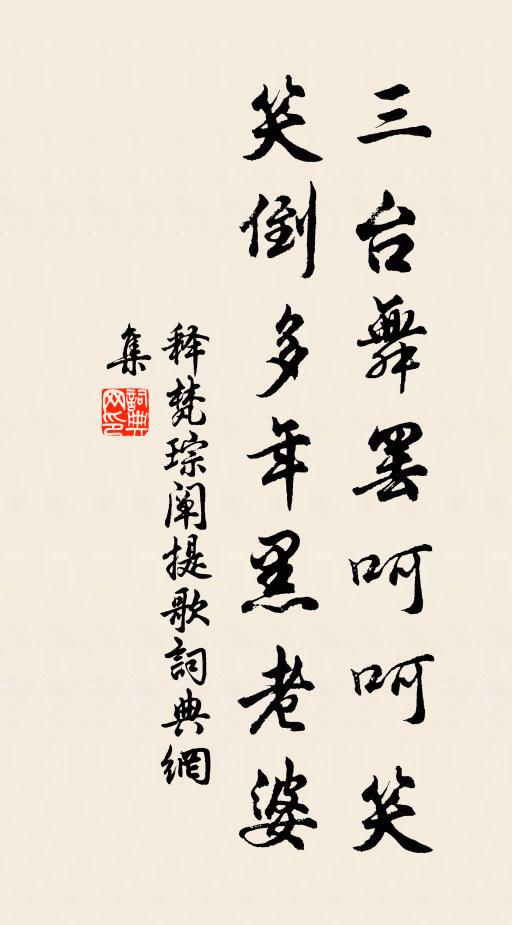 三台舞罢呵呵笑
笑倒多年黑老婆
释梵琮阐提歌詞典網
集
詞典网印